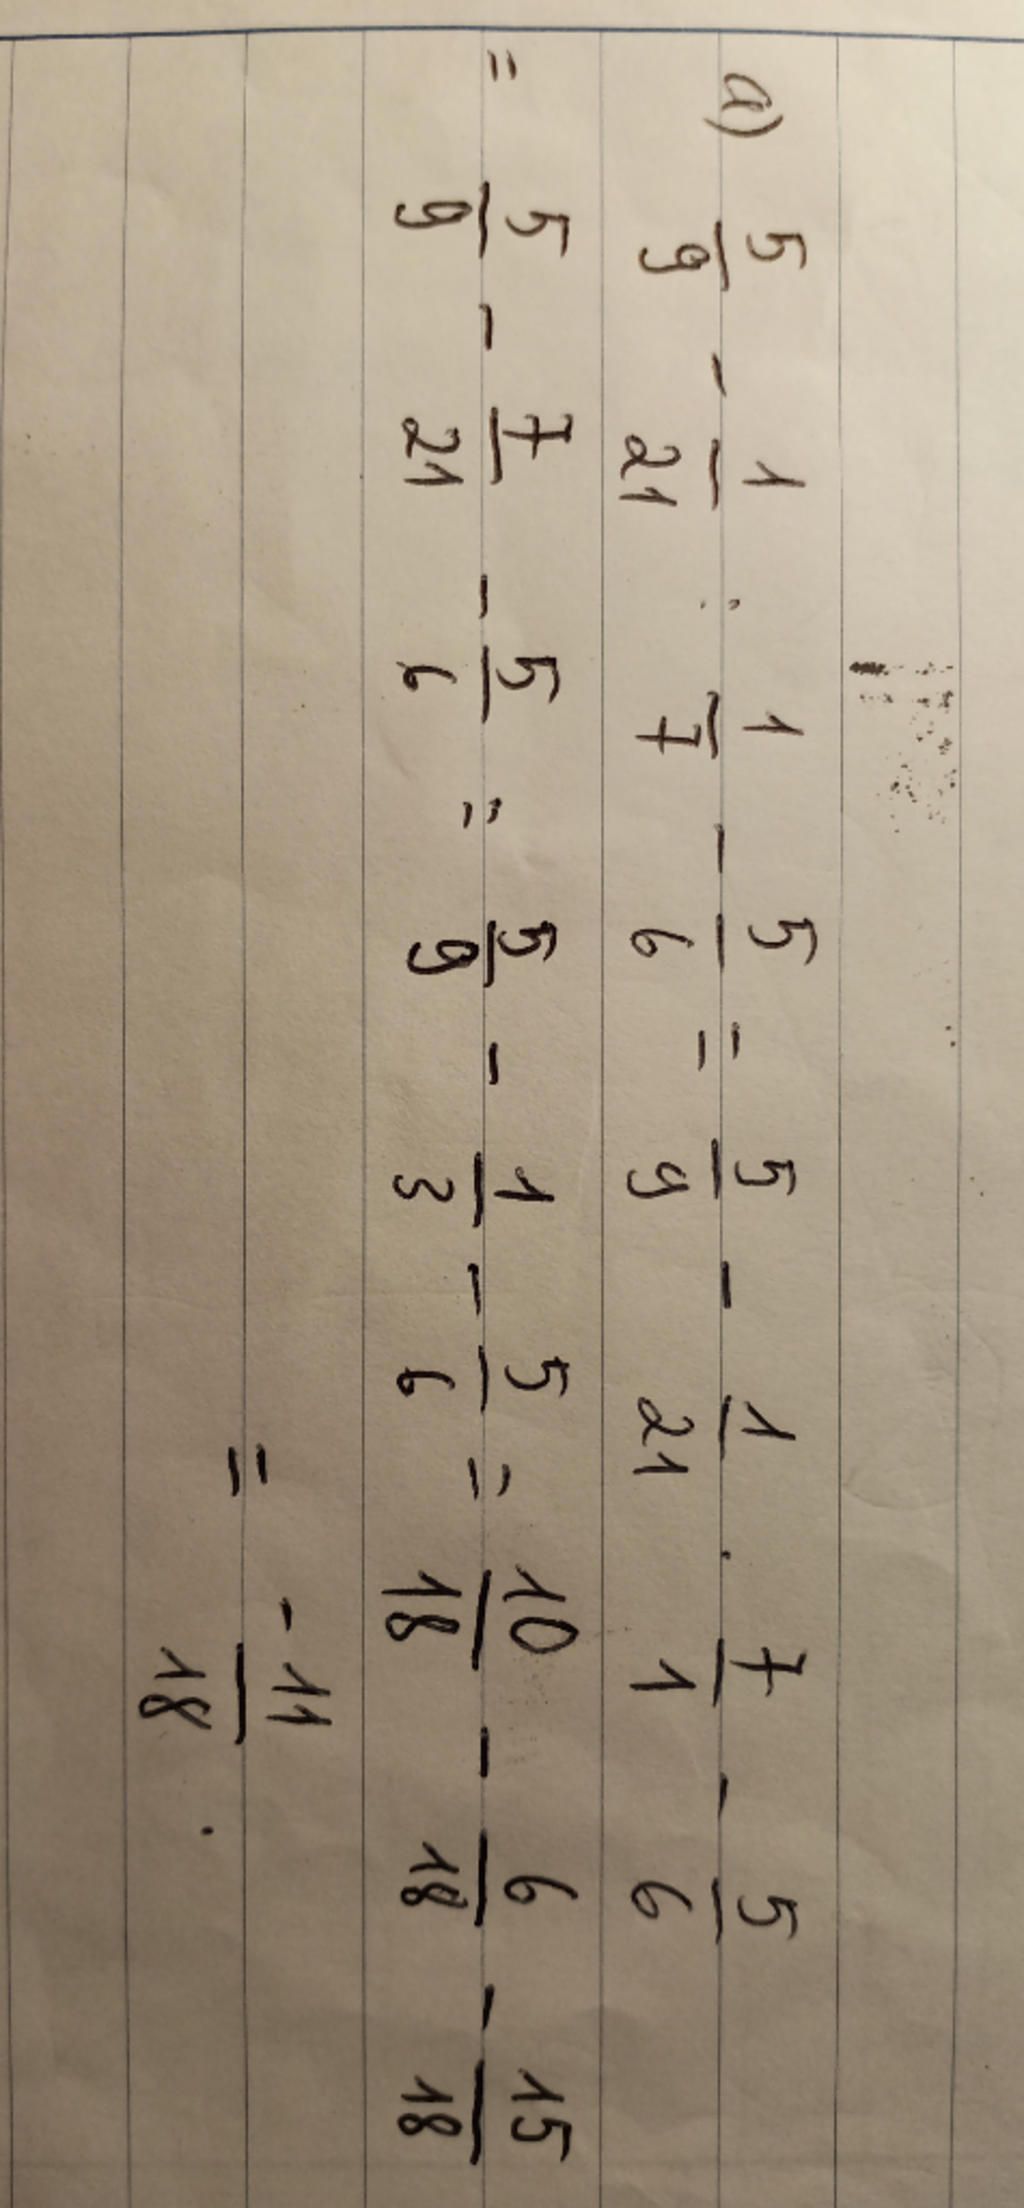 a) 5/9 - 1/21 : 1/7 - 5/6 = 5/9 - 1/21 · 7/1 - 5/6
= 5/9 - 7/21 - 5/6 = 5/9 - 1/3 - 5/6 = 10/18 - 6/18 - 15/18
= -11/18 .